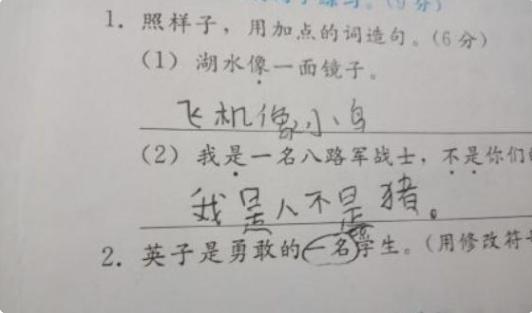 练习。(9分)
1. 照样子，用加点的词造句。(6分)
(1) 湖水像一面镜子。
飞机像小鸟
(2) 我是一名八路军战士，不是你们
我是人不是猪。
2. 英子是勇敢的一名学生。(用修改符